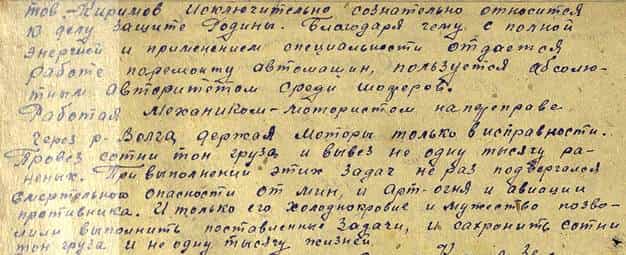 тов.-Киримов исключительно сознательно относится
к делу защите Родины. Благодаря чему с полной
энергией и применением специальности отдается
работе поремонту автомашин, пользуется абсолю-
тным авторитетом среди шоферов.
Работая механиком-мотористом напереправе
через р- Волга, держал моторы только в исправности.
Провез сотни тон груза и вывез не одну тысячу ра-
неных. При выполнении этих задач не раз подвергался
смертельной опасности от мин, и арт-огня и авиации
противника. И только его холоднокровие и мужество позво-
лили выполнить поставленные задачи, и сохронить сотни
тон груза и не одну тысячу жизней.